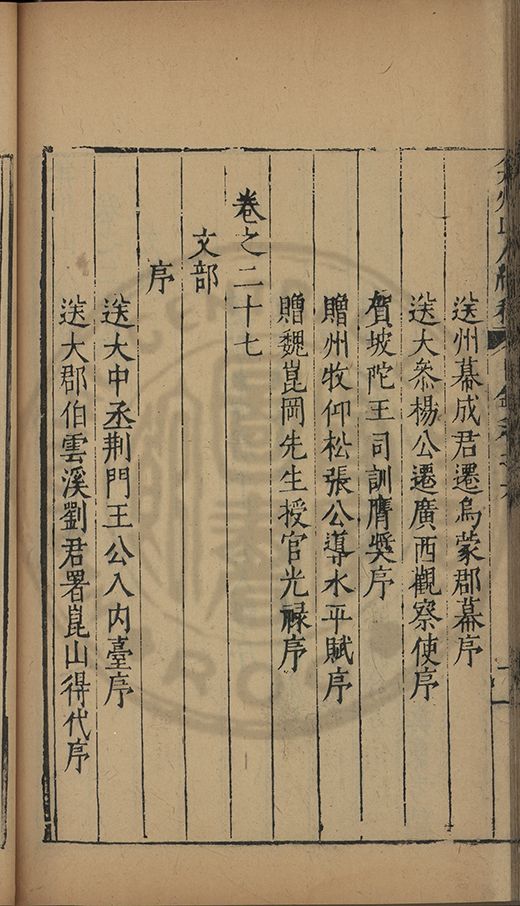 送州幕成君遷烏蒙郡幕序
送大叅楊公遷廣西觀察使序
賀坡陀王司訓膺奬序
贈州牧仰松張公導水平賦序
贈魏崑岡先生授官光祿序
卷之二十七
文部
序
送大中丞荆門王公入内臺序
送大郡伯雲溪劉君署崑山得代序